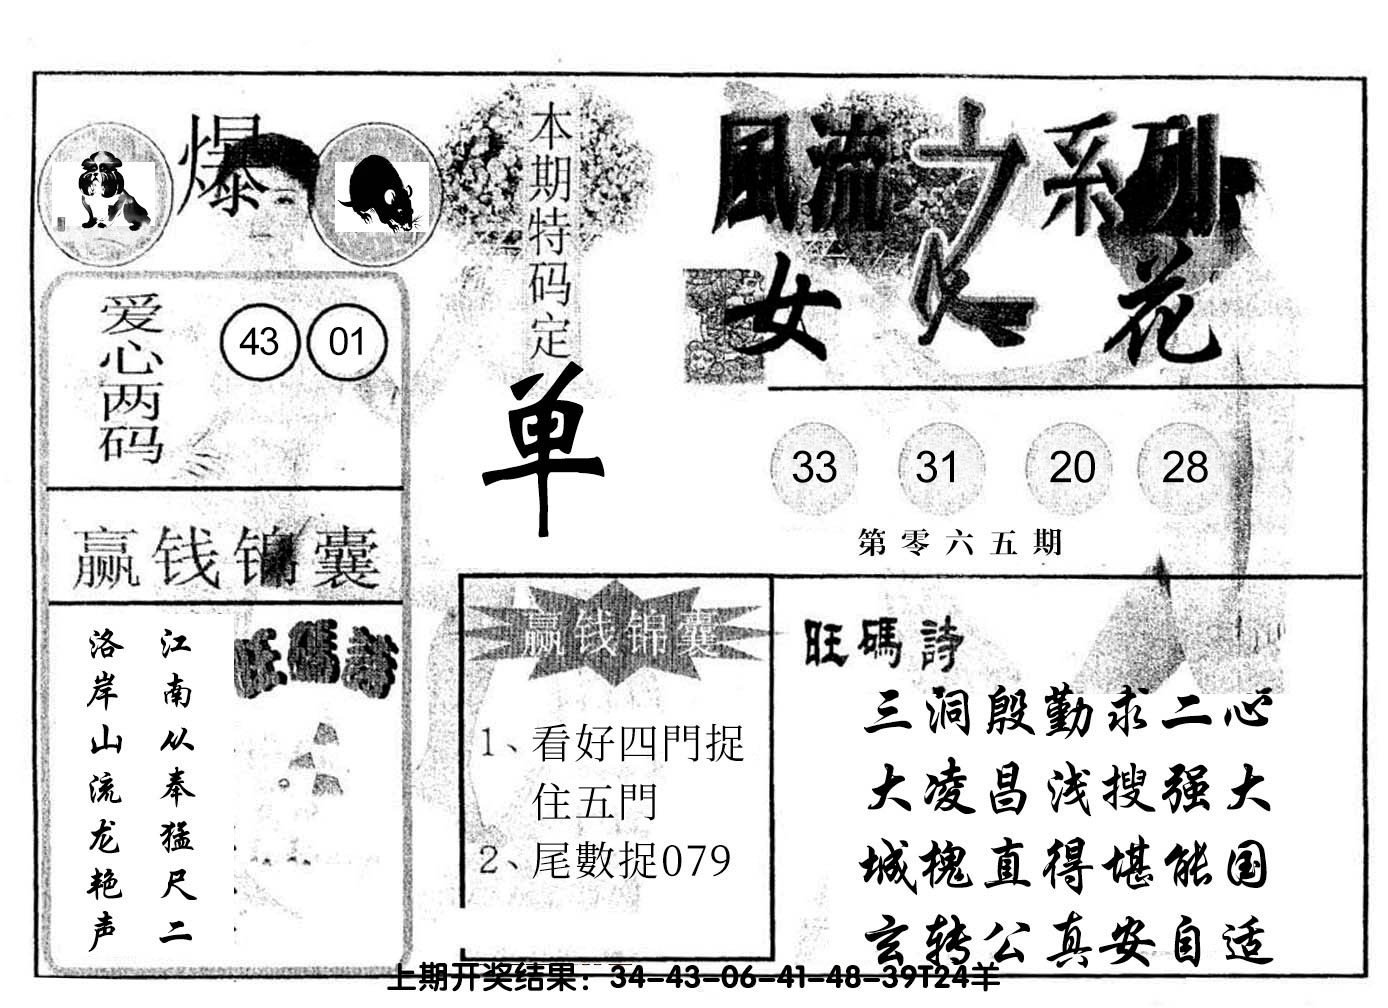 爆
本期特码定
单
風流之系列
女人花
爱心两码
43 01
33 31 20 28
第零六五期
赢钱锦囊
江南从奉猛尺二
洛岸山流龙艳声
旺碼詩
赢钱锦囊
1、看好四門捉
住五門
2、尾數捉079
旺碼詩
三洞殷勤求二心
大凌昌浅搜强大
城槐直得堪能国
玄转公真安自适
上期开奖结果：34-43-06-41-48-39T24羊